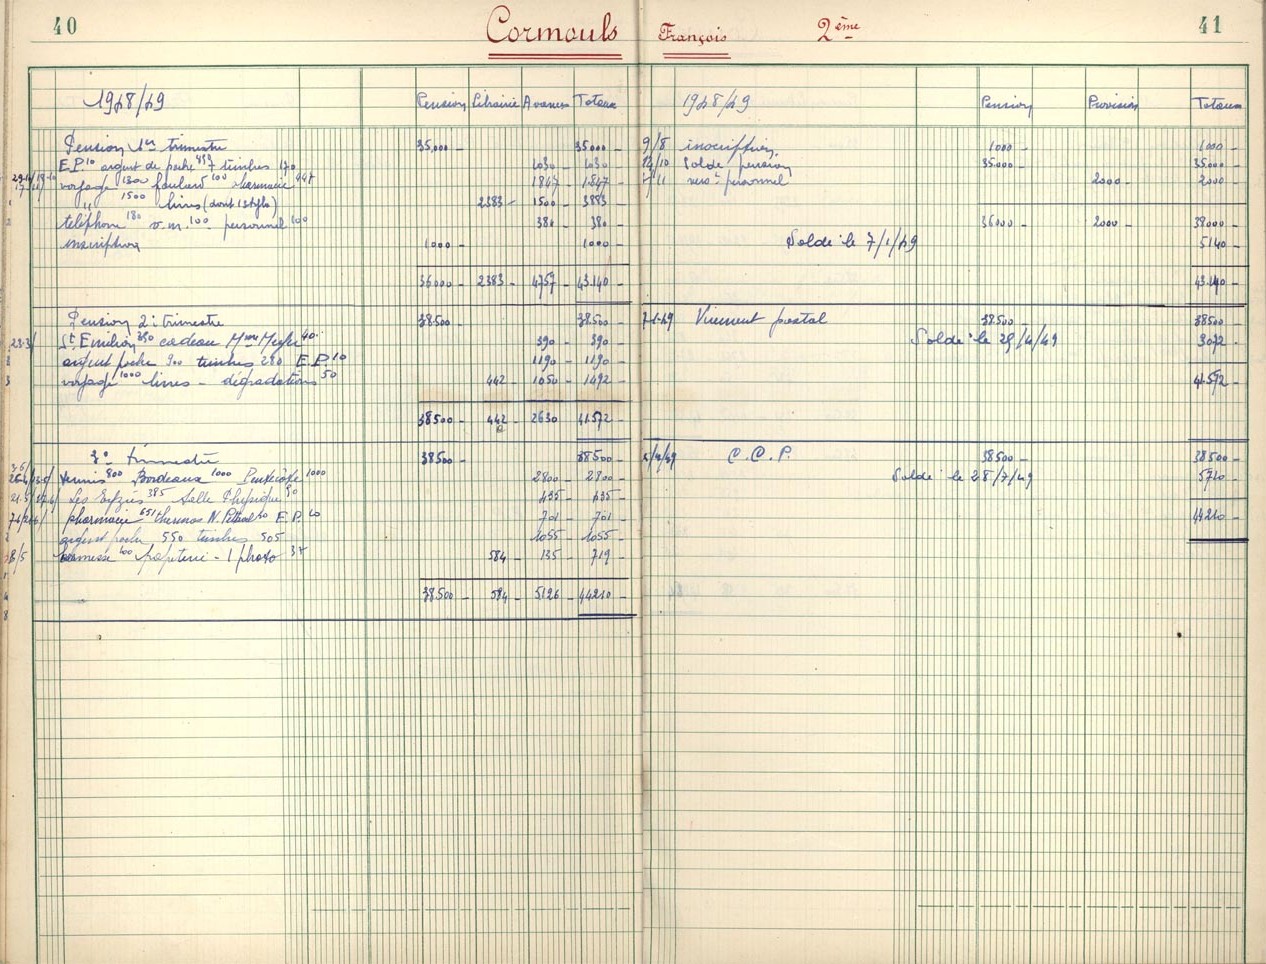 40
Cormouls François 2ème
41
1948/49 Pension Librairie Avances Totaux
Pension 1er trimestre 35.000 - 35.000 -
E.P. 10 argent de poche timbres 170 1030 - 1030 -
voyage foulard 100 pharmacie 447 1847 - 1847 -
" 1500 livres (dont 1 stylo) 2383 - 1500 - 3883 -
téléphone 180 v.m. 100 personnel 100 380 - 380 -
inscription 1000 - 1000 -
36000 - 2383 - 4757 - 43.140 -
Pension 2e trimestre 38.500 - 38.500 -
St Emilion 350 cadeau Mme 40 390 - 390 -
argent poche 900 timbres 280 E.P. 10 1190 - 1190 -
voyage 1000 livres - dégradations 50 442 - 1050 - 1492 -
38500 - 442 - 2630 - 41.572 -
3e trimestre 38.500 - 38.500 -
Tennis 800 Bordeaux 1000 Pentecôte 1000 2800 - 2800 -
Les Eyzies 385 Salle Physique 50 435 - 435 -
pharmacie 651 N. E.P. 10 701 - 701 -
argent poche 550 timbres 505 1055 - 1055 -
100 papeterie - 1 photo 35 584 - 135 - 719 -
38.500 - 584 - 5126 - 44210 -
1948/49 Pension Provision Totaux
9/8 inscription 1000 - 1000 -
solde pension 35.000 - 35.000 -
personnel 2000 - 2000 -
36000 - 2000 - 38000 -
Solde le 7/1/49 5140 -
43.140 -
7-1-49 Virement postal 38.500 - 38500 -
Solde le 29/4/49 3072 -
41.572 -
C.C.P. 38.500 - 38.500 -
Solde le 28/7/49 5710 -
44210 -